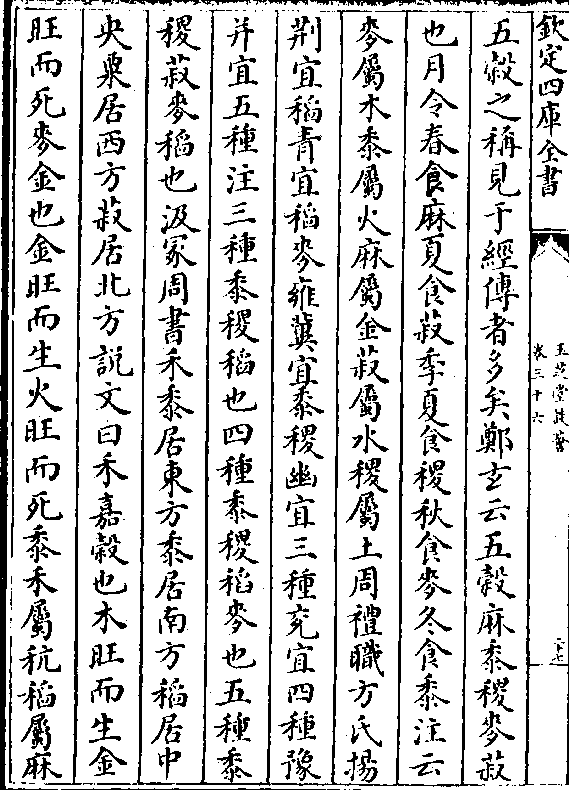 欽定四庫全書
玉芝堂談薈
卷三十六
二十七
五穀之稱見于經傳者多矣鄭玄云五穀麻黍稷麥菽
也月令春食麻夏食菽季夏食稷秋食麥冬食黍注云
麥屬木黍屬火麻屬金菽屬水稷屬土周禮職方氏揚
荆宜稻青宜稻麥雍冀宜黍稷幽宜三種兖宜四種豫
并宜五種注三種黍稷稻也四種黍稷稻麥也五種黍
稷菽麥稻也汲冢周書禾黍居東方黍居南方稻居中
央粟居西方菽居北方說文曰禾嘉穀也木旺而生金
旺而死麥金也金旺而生火旺而死黍禾屬秔稻屬麻